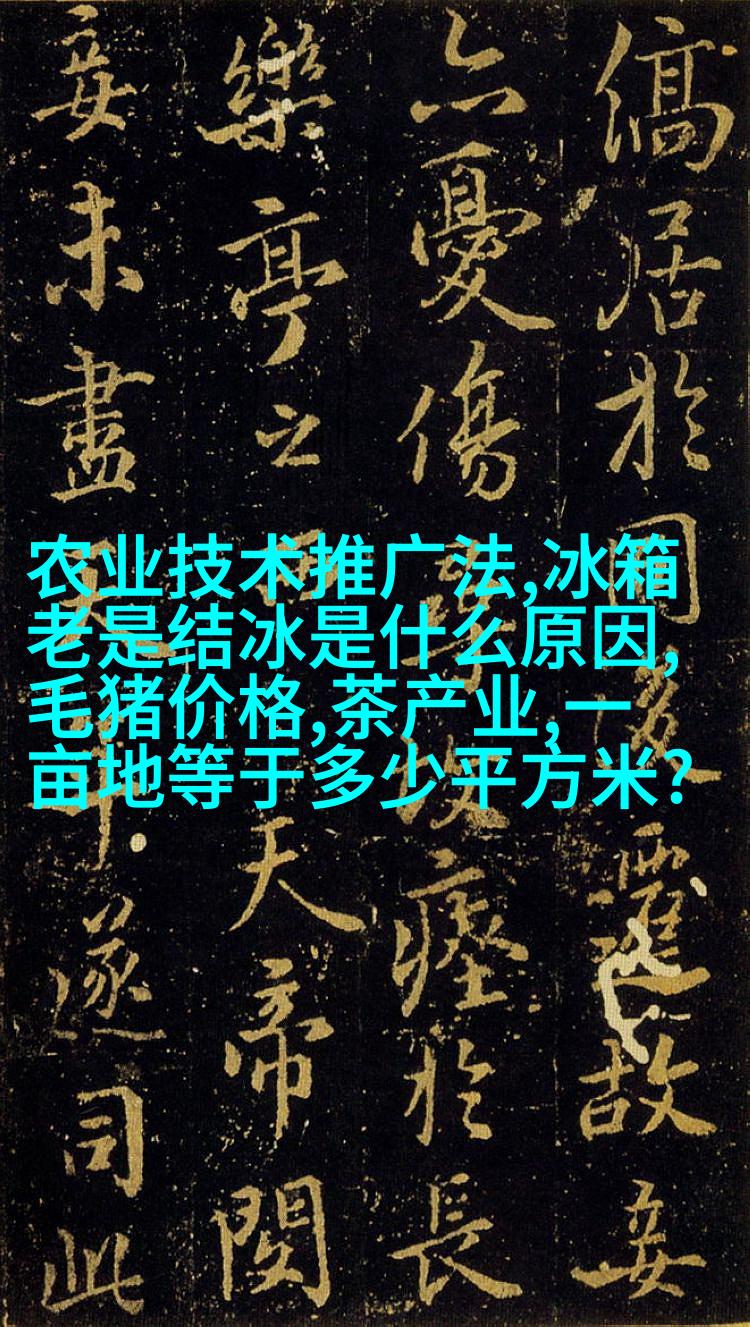 农业技术推广法,冰箱
老是结冰是什么原因,
毛猪价格,茶产业,一
亩地等于多少平方米?
居於同故妾
亡憂傷瘞於長
樂亭之天帝閔
妾未盡遂司此